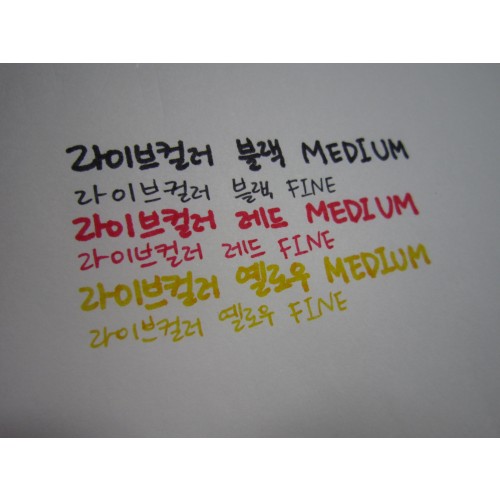 라이브컬러 블랙 MEDIUM
라이브컬러 블랙 FINE
라이브컬러 레드 MEDIUM
라이브컬러 레드 FINE
라이브컬러 옐로우 MEDIUM
라이브컬러 옐로우 FINE